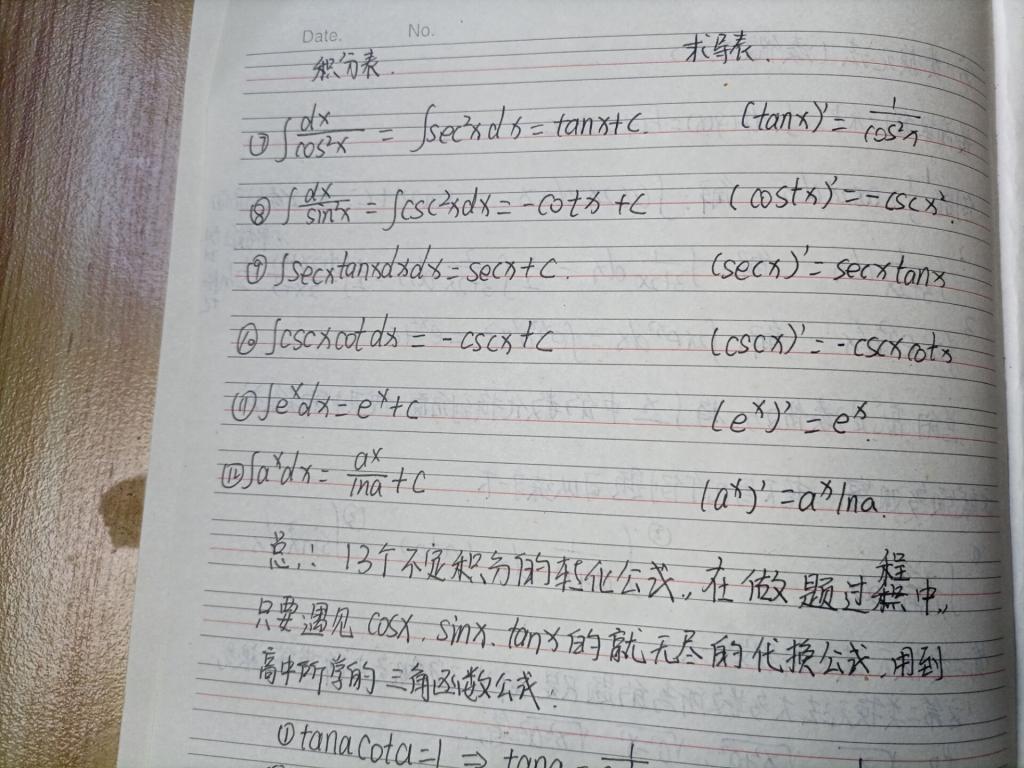 Date. No.
积分表. 求导表.
⑦ ∫dx/cos²x = ∫sec²xdx = tanx+C. (tanx)' = 1/cos²x
⑧ ∫dx/sin²x = ∫csc²xdx = -cotx+C (costx)' = -cscx².
⑨ ∫secxtanxdxdx = secx+C. (secx)' = secxtanx
⑩ ∫cscxcotdx = -cscx+C (cscx)' = -cscxcotx
⑪ ∫eˣdx = eˣ+C (eˣ)' = eˣ.
⑫ ∫aˣdx = aˣ/lna+C (aˣ)' = aˣlna.
总: 13个不定积分的转化公式, 在做题过程中,
只要遇见 cosx. sinx. tanx的就无尽的代换公式, 用到
高中所学的三角函数公式.
① tanacota=1 ⇒ tana =